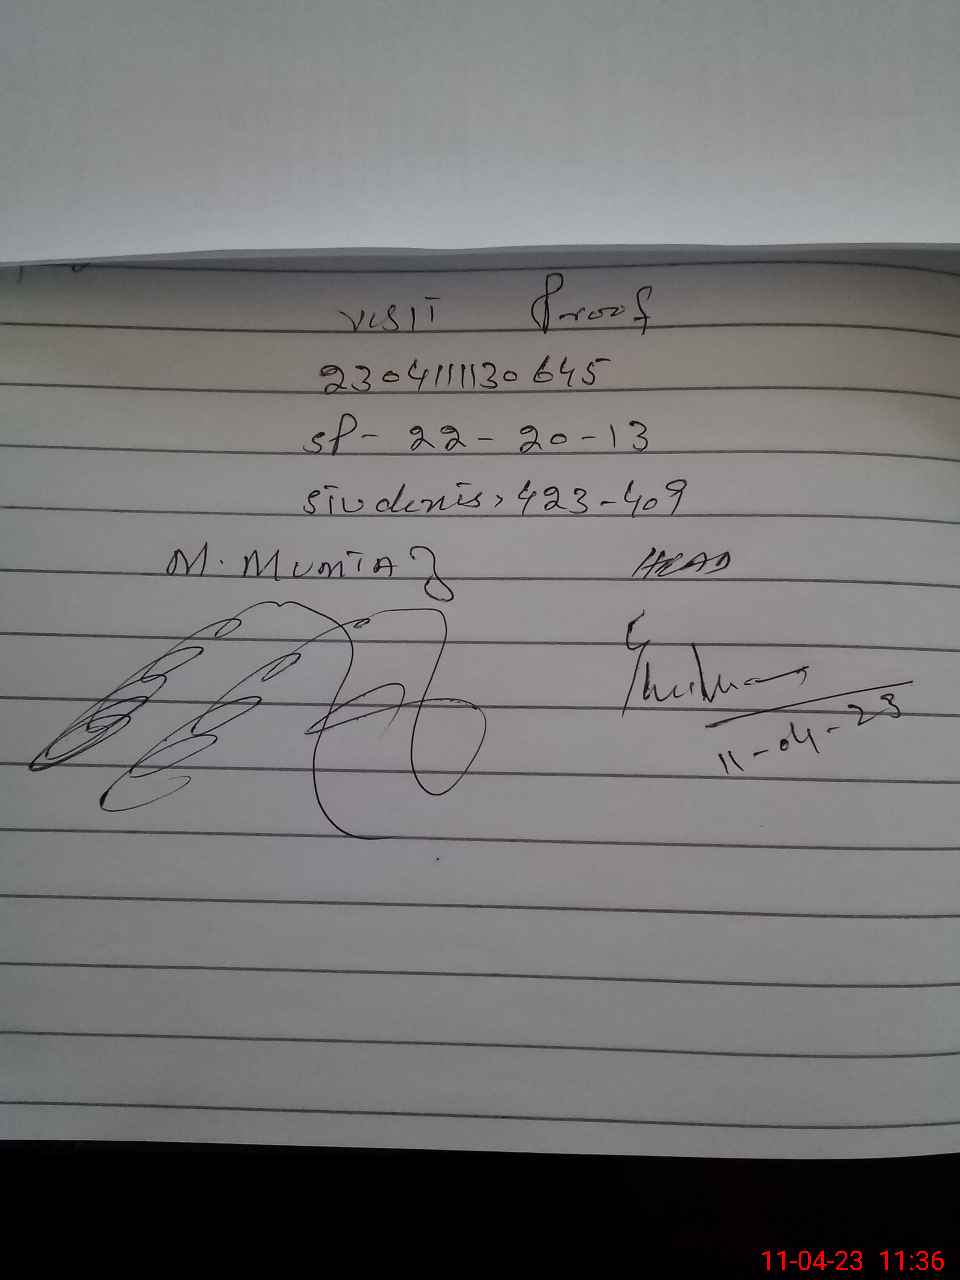 Visit Proof
230411130645
SP- 22-20-13
Students, 423-409
M. MUMTAZ HEAD
11-04-23
11-04-23 11:36